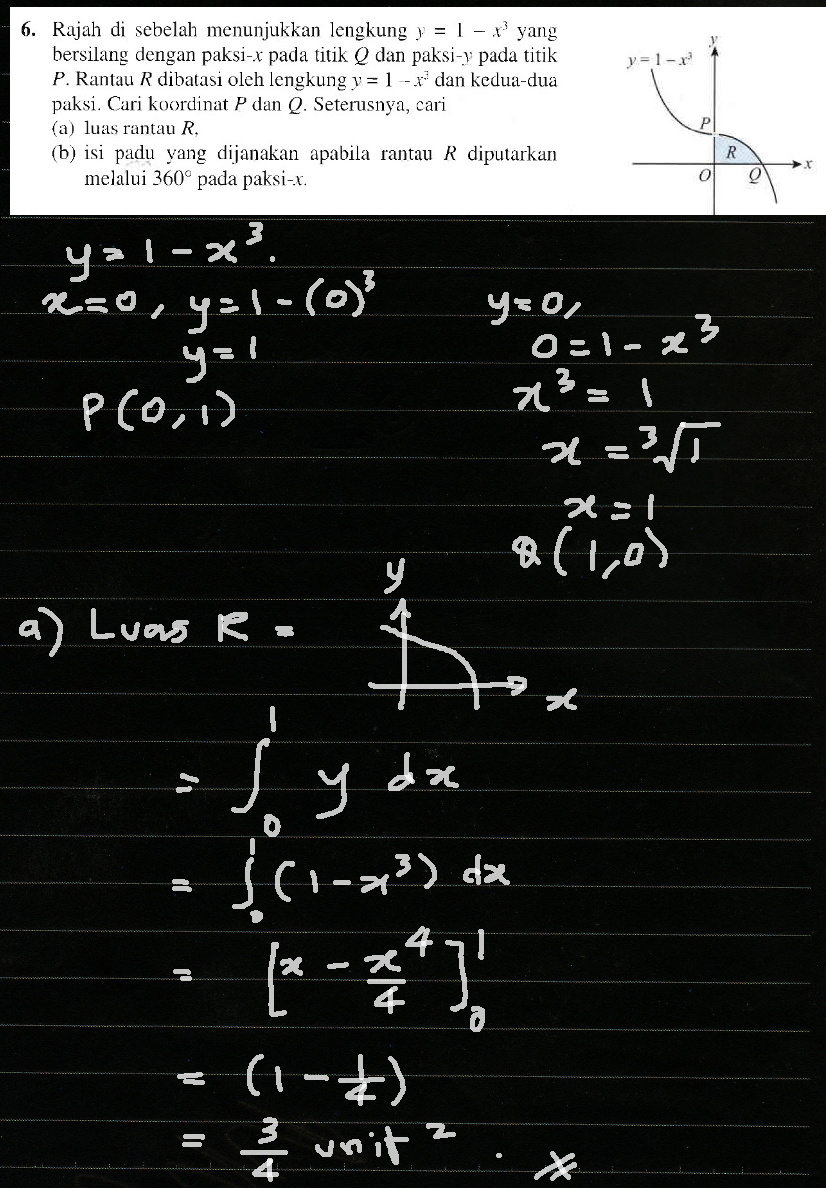 6. Rajah di sebelah menunjukkan lengkung y = 1 – x³ yang
bersilang dengan paksi-x pada titik Q dan paksi-y pada titik
P. Rantau R dibatasi oleh lengkung y = 1 – x³ dan kedua-dua
paksi. Cari koordinat P dan Q. Seterusnya, cari
(a) luas rantau R,
(b) isi padu yang dijanakan apabila rantau R diputarkan
melalui 360° pada paksi-x.
y
y = 1 – x³
P
R
x
O
Q
y = 1 - x³.
x = 0, y = 1 - (0)³
y = 1
P(0,1)
y = 0,
0 = 1 - x³
x³ = 1
x = ³√1
x = 1
Q(1,0)
y
a) Luas R =
x
= ∫₀¹ y dx
= ∫₀¹ (1 - x³) dx
= [x - x⁴/4]₀¹
= (1 - 1/4)
= 3/4 unit².